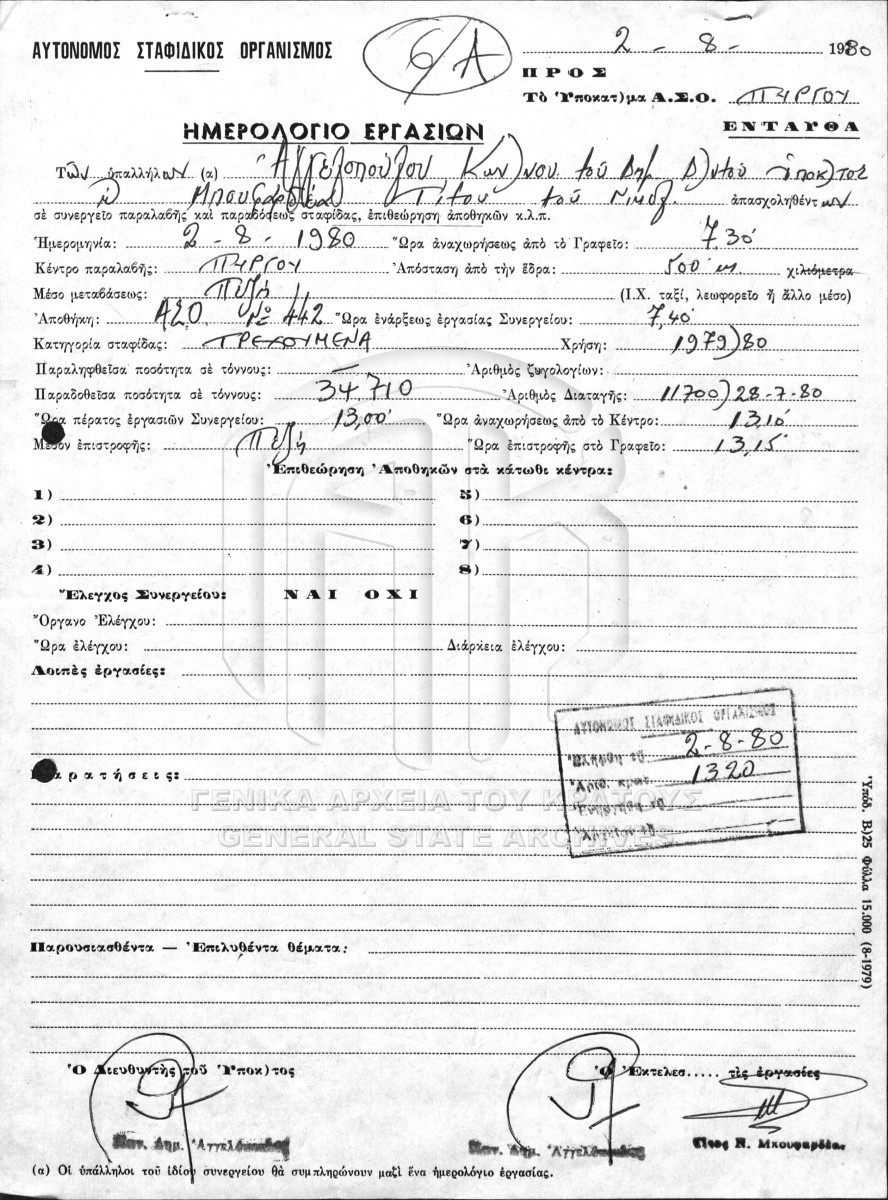 ΑΥΤΟΝΟΜΟΣ ΣΤΑΦΙΔΙΚΟΣ ΟΡΓΑΝΙΣΜΟΣ
6/Α
2 - 8 - 1980
ΠΡΟΣ
Τὸ Ὑποκατ)μα Α.Σ.Ο. ΠΥΡΓΟΥ
ΕΝΤΑΥΘΑ
ΗΜΕΡΟΛΟΓΙΟ ΕΡΓΑΣΙΩΝ
Τῶν ὑπαλλήλων (α) Ἀγγελοπούλου Κων)νου τοῦ Δημ. Δ)ντοῦ ὑποκ)τος
Μπουφαρδέα Τίτου τοῦ ἀπασχοληθέντων
σὲ συνεργεῖο παραλαβῆς καὶ παραδόσεως σταφίδας, ἐπιθεώρηση ἀποθηκῶν κ.λ.π.
Ἡμερομηνία: 2 - 8 - 1980 Ὥρα ἀναχωρήσεως ἀπὸ τὸ Γραφεῖο: 7,30
Κέντρο παραλαβῆς: ΠΥΡΓΟΥ Ἀπόσταση ἀπὸ τὴν ἕδρα: 500 m χιλιόμετρα
Μέσο μεταβάσεως: Πεζῇ (Ι.Χ. ταξί, λεωφορεῖο ἢ ἄλλο μέσο)
Ἀποθήκη: ΑΣΟ Νο 442 Ὥρα ἐνάρξεως ἐργασίας Συνεργείου: 7,40
Κατηγορία σταφίδας: ΤΡΕΧΟΥΜΕΝΑ Χρήση: 1979)80
Παραληφθεῖσα ποσότητα σὲ τόννους: — Ἀριθμὸς ζυγολογίων:
Παραδοθεῖσα ποσότητα σὲ τόννους: 34,710 Ἀριθμὸς Διαταγῆς: 11700)28-7-80
Ὥρα πέρατος ἐργασιῶν Συνεργείου: 13,00 Ὥρα ἀναχωρήσεως ἀπὸ τὸ Κέντρο: 13,10
Μέσον ἐπιστροφῆς: Πεζῇ Ὥρα ἐπιστροφῆς στὸ Γραφεῖο: 13,15
Ἐπιθεώρηση Ἀποθηκῶν στὰ κάτωθι κέντρα:
1) 5)
2) 6)
3) 7)
4) 8)
Ἔλεγχος Συνεργείου: ΝΑΙ ΟΧΙ
Ὄργανο Ἐλέγχου:
Ὥρα ἐλέγχου: Διάρκεια ἐλέγχου:
Λοιπὲς ἐργασίες:
ΑΥΤΟΝΟΜΟΣ ΣΤΑΦΙΔΙΚΟΣ ΟΡΓΑΝΙΣΜΟΣ
2-8-80
1320
Παρατήσεις:
ΓΕΝΙΚΑ ΑΡΧΕΙΑ ΤΟΥ ΚΡΑΤΟΥΣ
GENERAL STATE ARCHIVES
Ὑπόδ. Β)25 Φύλλα 15.000 (8-1979)
Παρουσιασθέντα — Ἐπιλυθέντα θέματα:
Ὁ Διευθυντὴς τοῦ Ὑποκ)τος Ὁ Ἐκτελεσ..... τὶς ἐργασίες
Κων. Δημ. Ἀγγελόπουλος Κων. Δημ. Ἀγγελόπουλος Τίτος Ν. Μπουφαρδέας
(α) Οἱ ὑπάλληλοι τοῦ ἰδίου συνεργείου θὰ συμπληρώνουν μαζὶ ἕνα ἡμερολόγιο ἐργασίας.